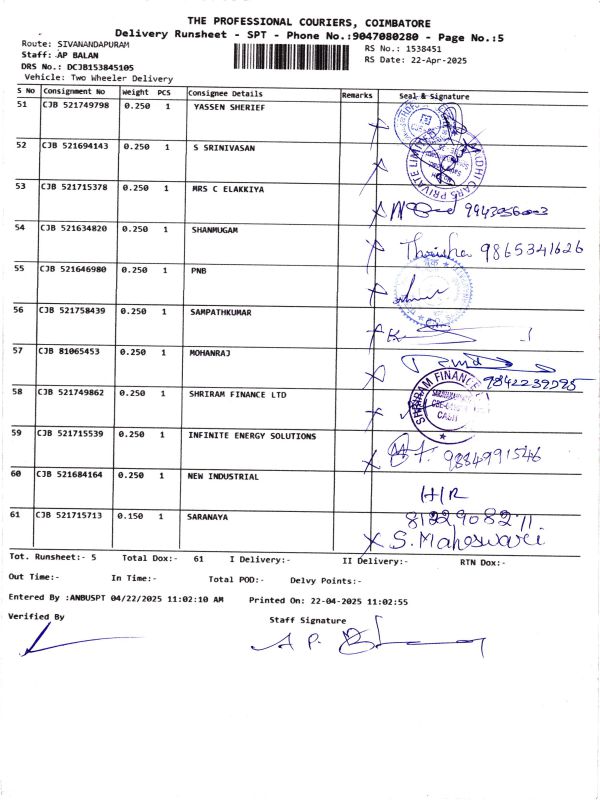 THE PROFESSIONAL COURIERS, COIMBATORE
Delivery Runsheet - SPT - Phone No.:9047080280 - Page No.:5
Route: SIVANANDAPURAM
RS No.: 1538451
Staff: AP BALAN
RS Date: 22-Apr-2025
DRS No.: DCJB153845105
Vehicle: Two Wheeler Delivery
S No Consignment No Weight PCS Consignee Details Remarks Seal & Signature
51 CJB 521749798 0.250 1 YASSEN SHERIEF
52 CJB 521694143 0.250 1 S SRINIVASAN
PRIVATE LIMITED
53 CJB 521715378 0.250 1 MRS C ELAKKIYA
54 CJB 521634820 0.250 1 SHANMUGAM
9865341626
55 CJB 521646980 0.250 1 PNB
56 CJB 521758439 0.250 1 SAMPATHKUMAR
57 CJB 81065453 0.250 1 MOHANRAJ
58 CJB 521749862 0.250 1 SHRIRAM FINANCE LTD
SHRIRAM FINANCE
59 CJB 521715539 0.250 1 INFINITE ENERGY SOLUTIONS
9884991546
60 CJB 521684164 0.250 1 NEW INDUSTRIAL
H/R
61 CJB 521715713 0.150 1 SARANAYA
8122908211
S. Maheswari
Tot. Runsheet:- 5 Total Dox:- 61 I Delivery:- II Delivery:- RTN Dox:-
Out Time:- In Time:- Total POD:- Delvy Points:-
Entered By :ANBUSPT 04/22/2025 11:02:10 AM Printed On: 22-04-2025 11:02:55
Verified By Staff Signature
A P.